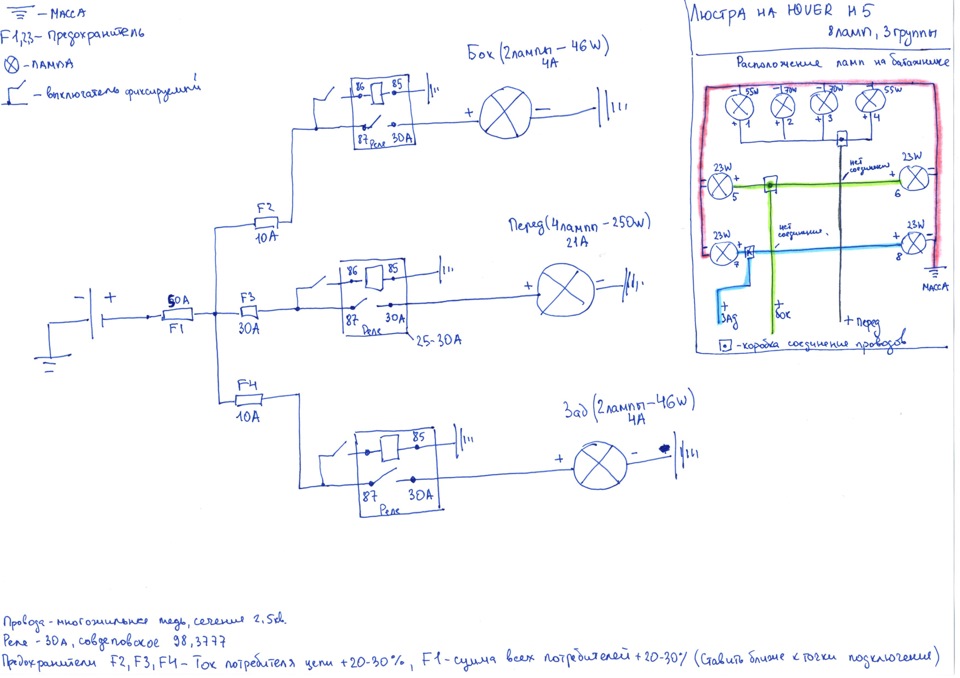 - МАССА
F1,2,3 - Предохранитель
- ЛАМПА
- выключатель фиксируемый
Люстра на HOVER H5
8 ламп, 3 группы
Расположение ламп на багажнике
55W
70W
70W
55W
- - - -
+ 1
+ 2
+ 3
+ 4
нет соединения
23W
+
5
23W
+
6
нет соединения.
23W
+
7
23W
+
8
МАССА
+ ЗАД
+ БОК
+ Перед
- коробка соединение проводов
Бок (2 лампы - 46W)
4А
86
85
87
30А
Реле
+
-
F2
10А
Перед (4 лампы - 250W)
21А
86
85
87
30А
Реле
25-30А
+
-
- +
50А
F1
F3
30А
F4
10А
Зад (2 лампы - 46W)
4А
85
87
30А
Реле
+
-
Провода - многожильнае медь, сечение 2.5кв.
Реле - 30А, совдеповское 98.3777
Предохранители F2, F3, F4 - Ток потребителя цепи +20-30%, F1 - сумма всех потребителей +20-30% (Ставить ближе к точки подключения)